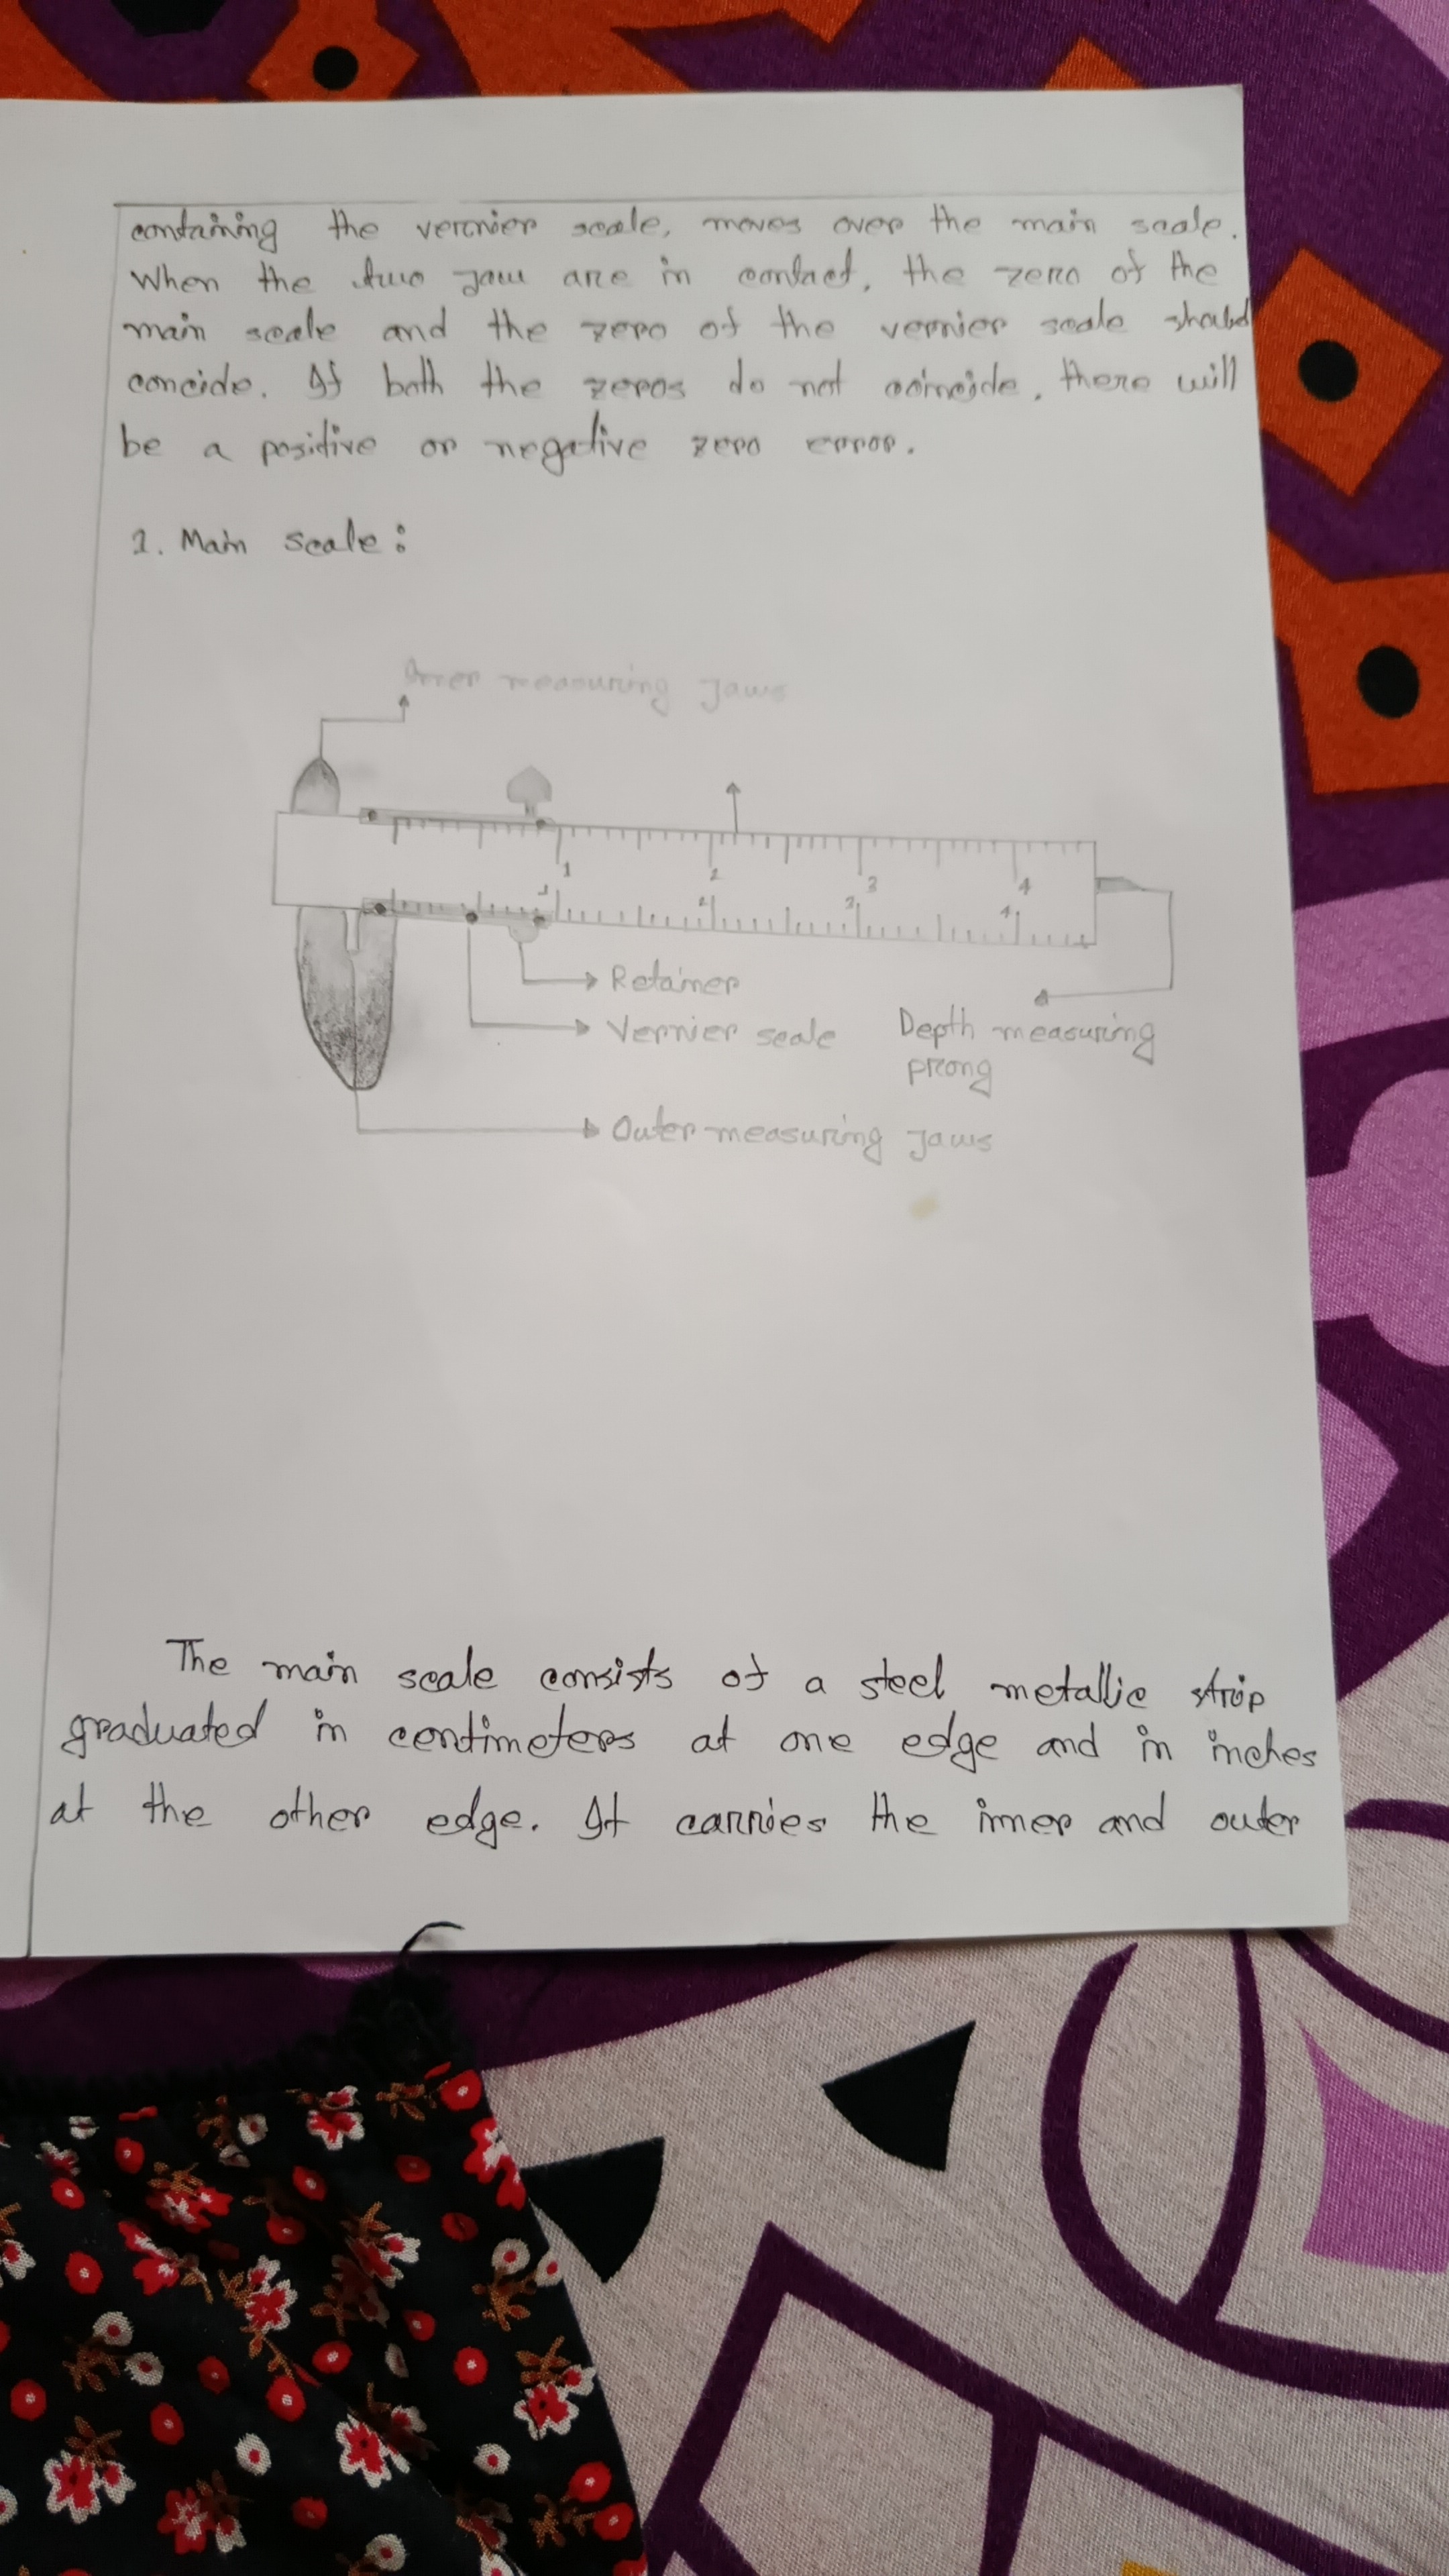 containing the vernier scale, moves over the main scale.
When the two jaw are in contact, the zero of the
main scale and the zero of the vernier scale should
concide. If both the zeros do not coincide, there will
be a positive or negative zero error.
1. Main scale:
Inner measuring jaws
1 2 3 4
1 2 3 4
Retainer
Vernier scale
Depth measuring
prong
Outer measuring jaws
The main scale consists of a steel metallic strip
graduated in centimeters at one edge and in inches
at the other edge. It carries the inner and outer